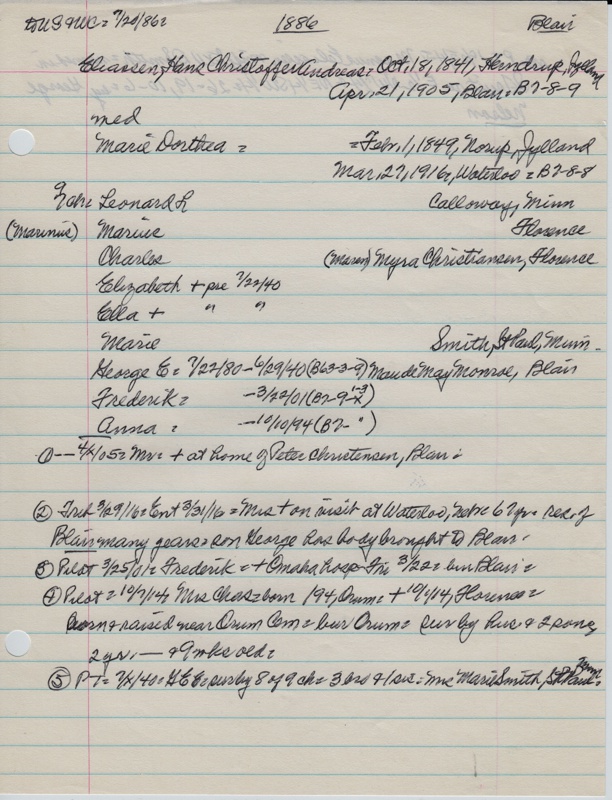 to US & WC = 7/20/86 = 1886 Blair
Eliassen, Hans Christoffer Andreas = Oct, 18, 1841, Herndrup, Jylland
Apr, 21, 1905, Blair = B7-8-9
med
Marie Dorthea = = Febr, 1, 1849, Norup, Jylland
Mar, 27, 1916, Waterloo = B7-8-8
9ch = Leonard L Calloway, Minn
(Marinus) Marius Florence
Charles (Maren) Myra Christiansen, Florence
Elizabeth + pre 7/22/40
Ella + " "
Marie Smith, St Paul, Minn
George E = 7/22/80 - 6/29/40 (B63-3-9) Maude May Monroe, Blair
Frederik = - 3/22/01 (B7-9-
Anna = - 10/10/94 (B7- "
① -- 4/X/05 = Mr = + at home of Peter Christensen, Blair =
② Trib 3/29/16 = Ent 3/31/16 = Mrs + on visit at Waterloo, Nebr = 67 yr = res. of
Blair many years = son George has body brought to Blair =
③ Pilot 3/25/01 = Frederik = + Omaha hosp Fri 3/22 = bur Blair =
④ Pilot = 10/7/14 Mrs Chas = born 194, Orum = + 10/1/14, Florence =
born & raised near Orum Cem = bur Orum = sur by hus & 2 sons,
2 yrs. — & 9 mks old =
⑤ P-T = 7/X/40 = H E E = sur by 8 of 9 ch = 3 bro & 1 sis = Mrs Marie Smith, St Paul Minn =